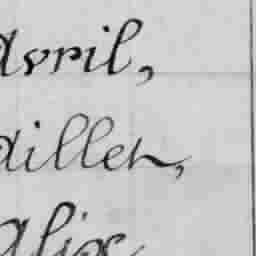 avril,
aillet,
alix